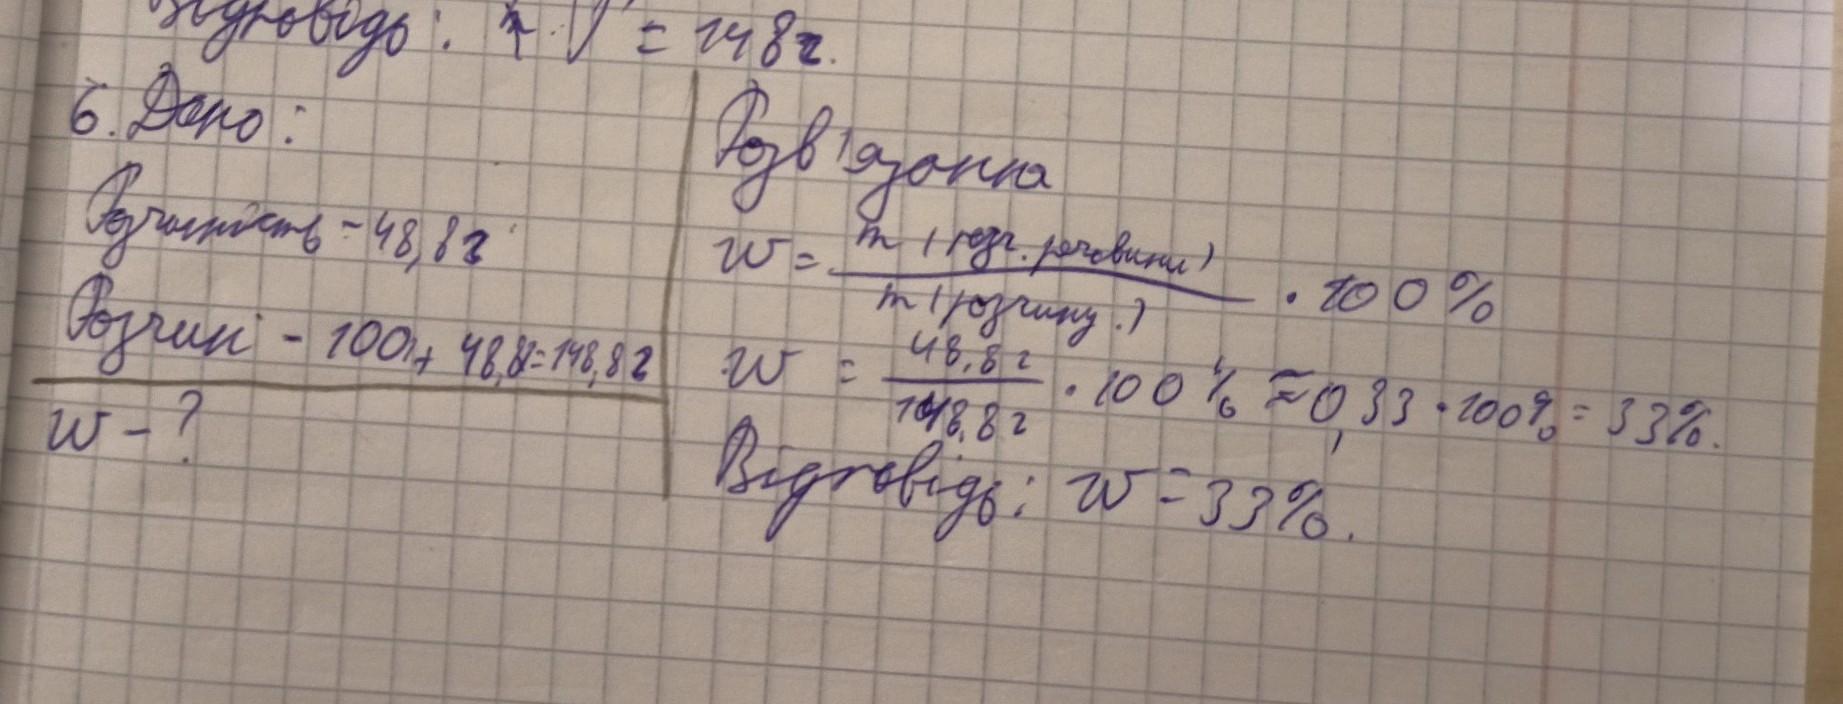 Відповідь: V = 148г.
6. Дано:
Розчиність - 48,8г
Розчин - 100г + 48,8г=148,8г
W - ?
Розв'язання
W = m (розч. речовини) / m (розчину.) · 100%
W = 48,8г / 148,8г · 100% ≈ 0,33 · 100% = 33%.
Відповідь: W = 33%.